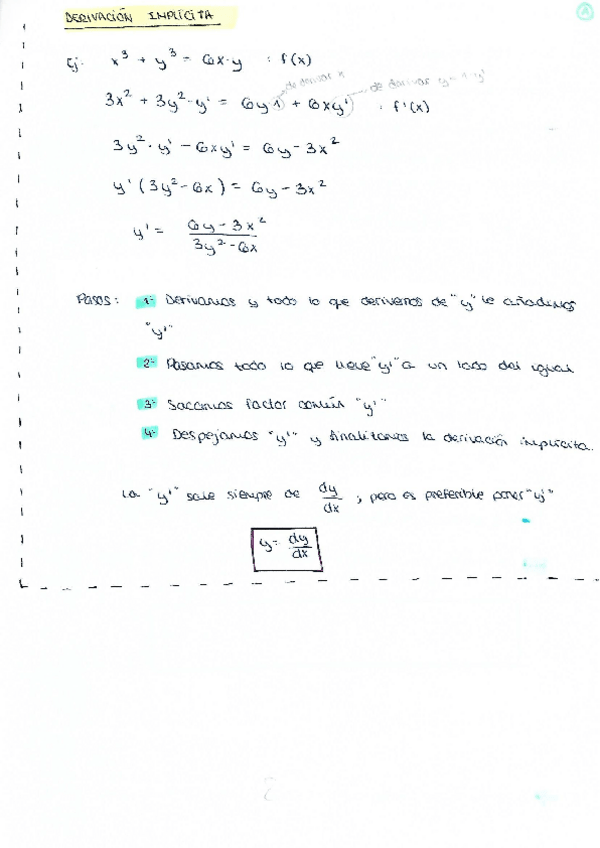 DERIVACIÓN IMPLÍCITA
A
Ej: x³ + y³ = 6x·y : f(x)
de derivar x
de derivar y = 1·y'
3x² + 3y²·y' = 6y·1 + 6xy' : f'(x)
3y²·y' - 6xy' = 6y - 3x²
y' (3y² - 6x) = 6y - 3x²
y' = 6y - 3x² / 3y² - 6x
Pasos: 1- Derivamos y todo lo que derivemos de "y" le añadimos
"y'"
2- Pasamos todo lo que lleve "y'" a un lado del igual
3- Sacamos factor común "y'"
4- Despejamos "y'" y finalizamos la derivación implícita.
La "y'" sale siempre de dy/dx ; pero es preferible poner "y'"
y = dy/dx
2